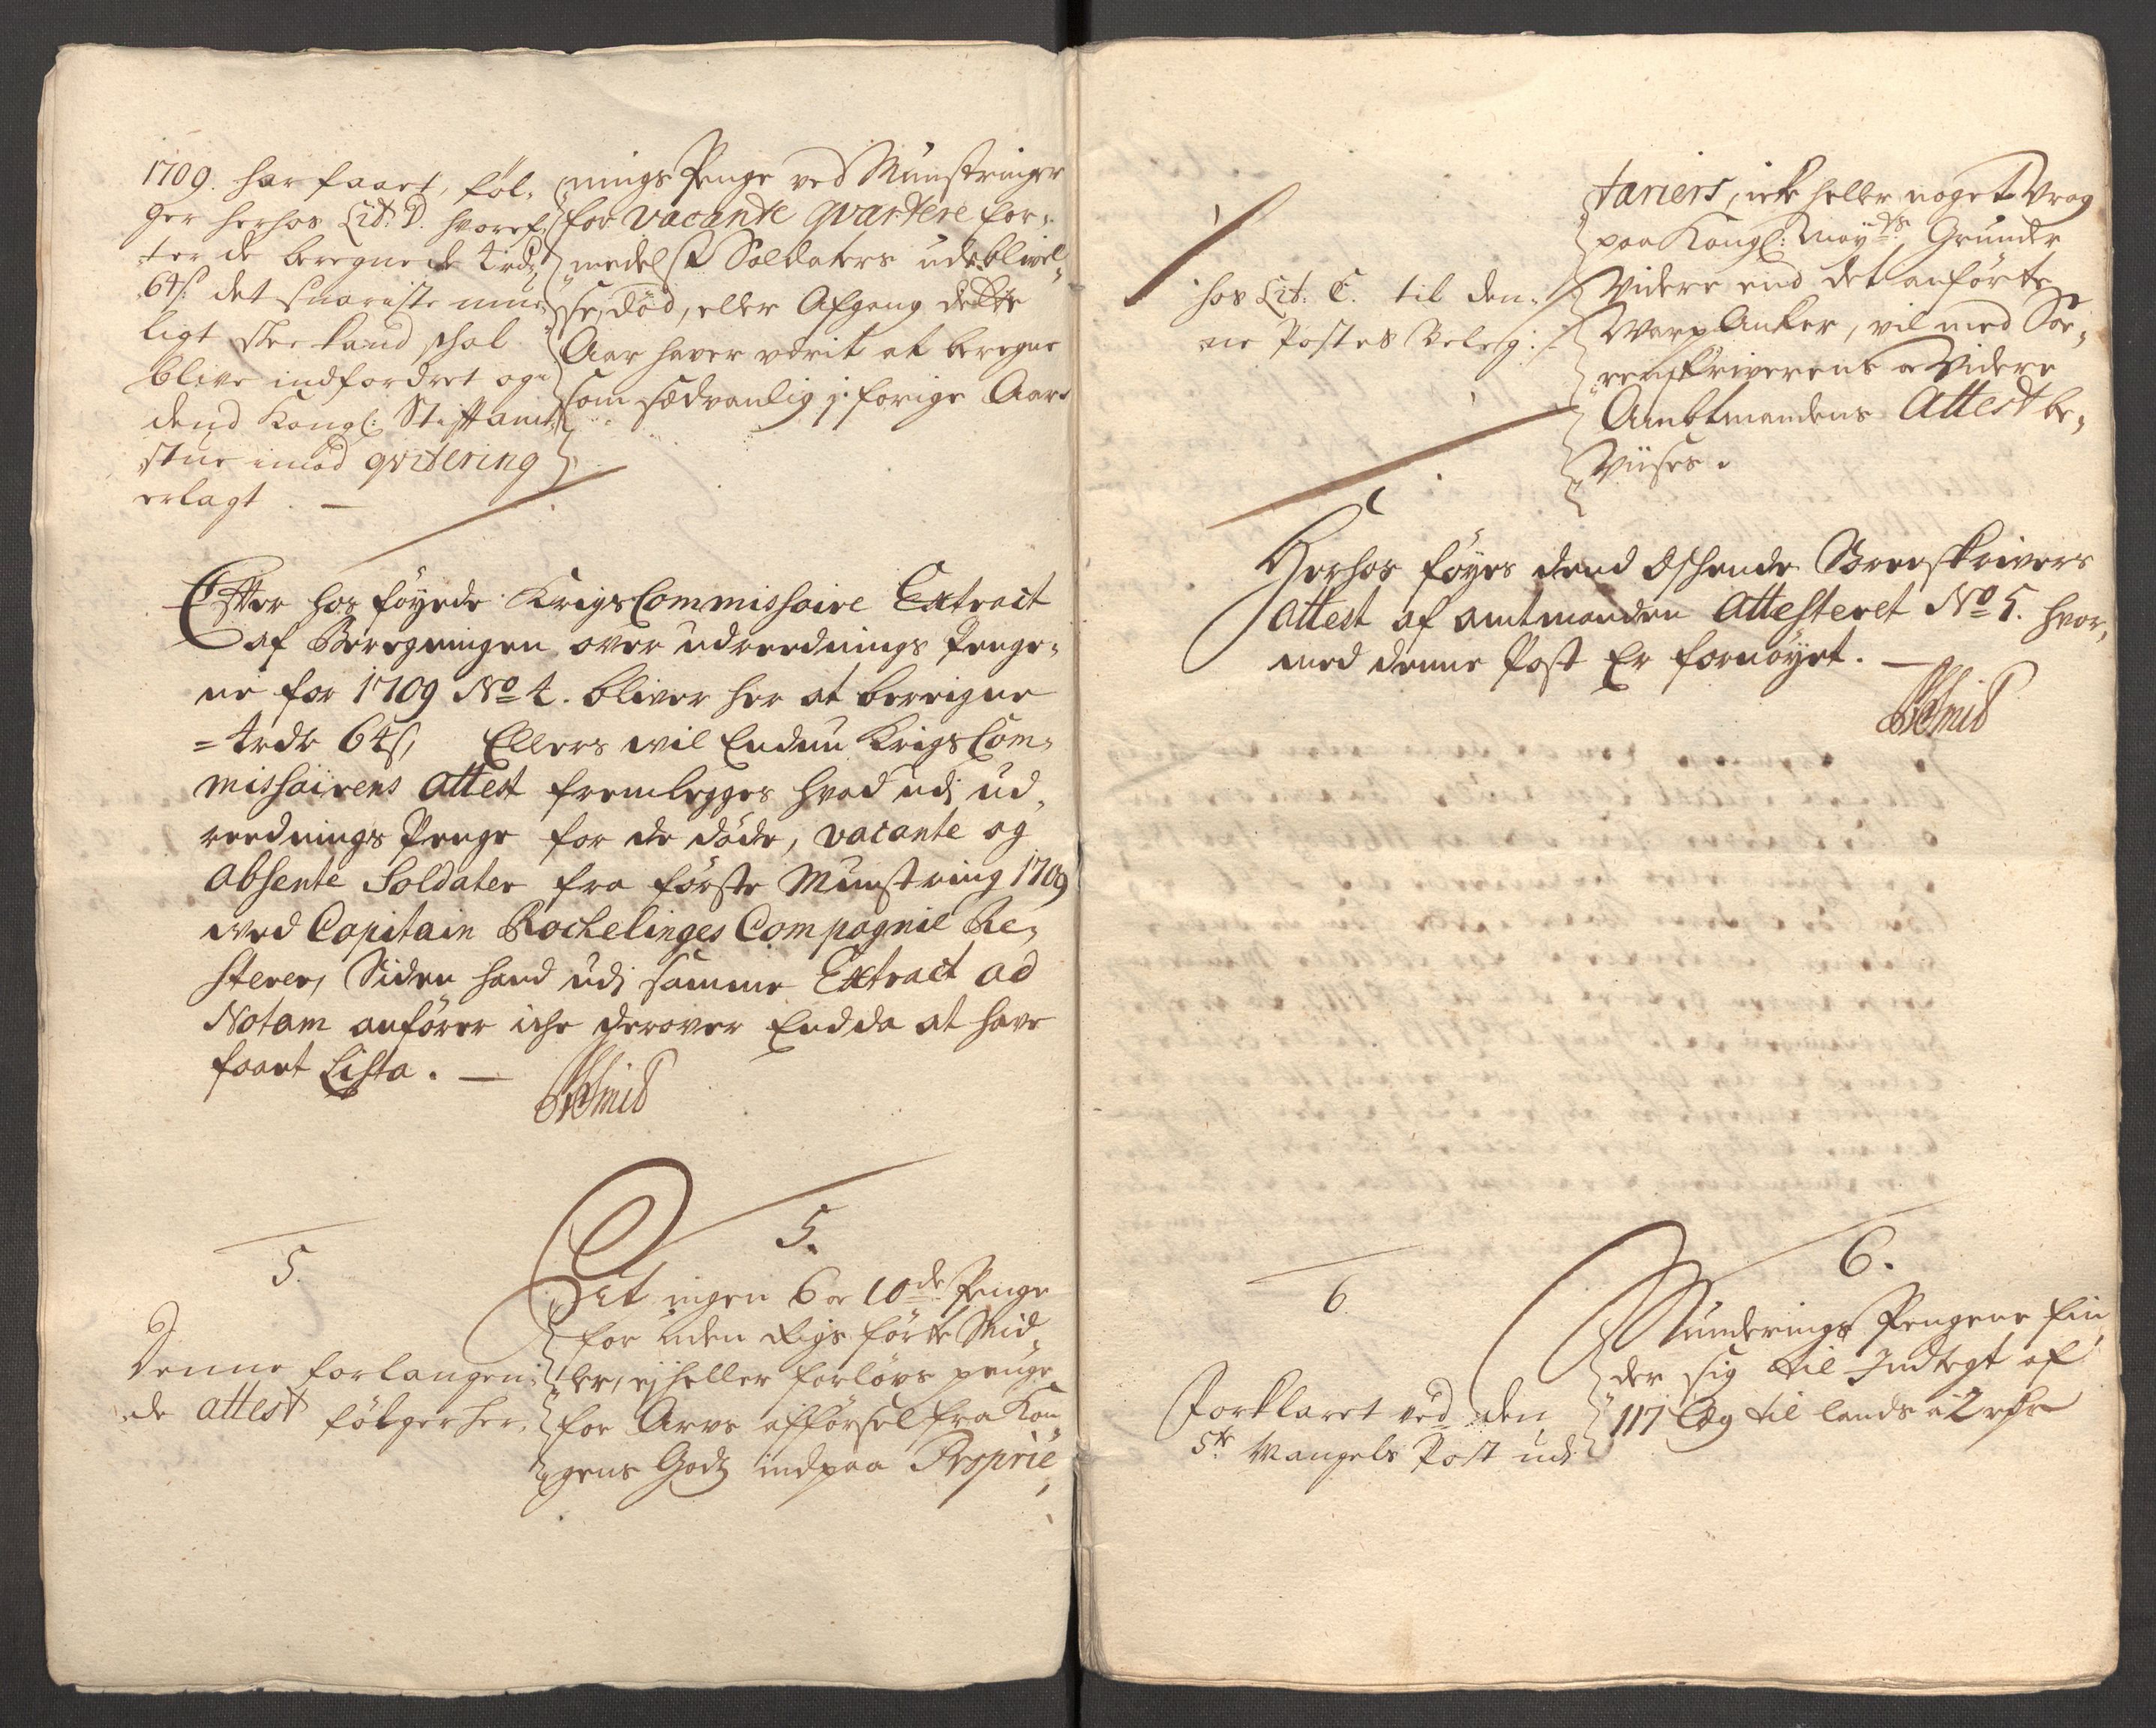 1709. har faaet, føl-
ger herhos Lit: D. hvoref-
ter de beregnede 4rdr
64s: det snariste mue-
ligt skee kand, skal
blive indfordret og i
dend Kongl: Stiftamt-
stue imod qvitering
erlagt. —
nings Penge ved Munstringer
for vacante qvartere for-
medelst Soldaters udeblivel-
se, død, eller Afgang dette
Aar haver verit at beregne
som sædvanlig j forige Aar
Efter hos føyede KrigsCommissaire Extract
af Beregningen over udreednings Penge-
ne for 1709 No 4. bliver her at berregne
= 4rdr 64s, Ellers vil Endnu KrigsCom-
missairens attest fremlegges hvad udi ud-
reednings Penge for de døde, vacante og
absente Soldater fra første Munstring 1709
ved Capitain Rochelinges Compagnie Re-
sterer, Siden hand udi samme Extract ad
Notam anfører iche derover Endda at have
faaet Lista. —
Smid
5.
Denne forlangen-
de attest følger her-
5.
At ingen 6 og 10de Penge
for uden Rigs førte Mid-
ler, ej heller forlovs penge
for Arve afførsel fra Kon-
gens Godz ind paa Proprie-
hos Lit: C. til den-
ne Postes Beleg:
tariers, iche heller noget Vrag
paa Kongl: Mayts Grunde
Videre end det anførte
Warp Anker, vil med Sor-
renskriverens og Videre
Ambtmandens Attest be-
Viises.
Herhos føyes dend Schende Sorenskrivers
attest af amtmanden attesteret No 5. hvor-
med denne Post Er fornøyet. —
Smid
6.
Forklaret ved den
5te Mangels Post udi
6.
Munderings Pengene fin-
der sig til Indtegt af
117 Læg til lands à 2 rdr